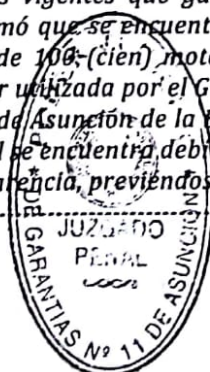 s vigentes que ga
mó que se encuent
de 100,-(cien) mot
r utilizada por el G
de Asunción de la
l se encuentra debi
rencia, previendos
JUZGADO
PENAL
DE GARANTIAS Nº 11 DE ASUNCION